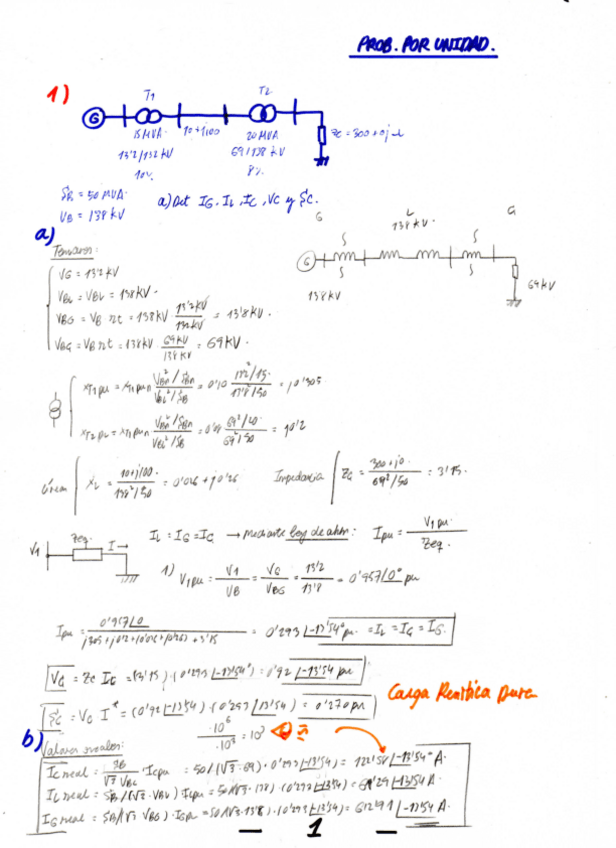 PROB. POR UNIDAD.
1)
T1
T2
G
15 MVA
10+j100
20 MVA
Zc = 300+0j Ω
13'2/132 kV
69/138 kV
10%
8%
SB = 50 MVA
VB = 138 kV
a) Det IG, IL, IC, VC y SC.
a)
Tensiones:
VG = 13'2 kV
VBL = VBL = 138 kV.
VBG = VB rt = 138 kV · 13'2 kV / 132 kV = 13'8 kV.
VBG = VB rt = 138 kV · 69 kV / 138 kV = 69 kV.
G
L
138 kV.
G
G
13'8 kV
69 kV
= 0'10 · 13'2²/15 / 13'8²/50 = j0'305
= 0'08 · 69²/20 / 69²/50 = j0'2
Línea
XL = 10+j100 / 138²/50 = 0'026 + j0'26
Impedancia
ZC = 300+j0 / 69²/50 = 3'15.
V1
Zeq.
I
IL = IG = IC → mediante ley de ohm: Ipu = V1pu / Zeq.
1) V1pu = V1 / VB = VG / VBG = 13'2 / 13'8 = 0'957∠0° pu
Ipu = 0'957∠0 / j305+j0'2+(0'026+j0'26)+3'15 = 0'293∠-13'54° pu = IL = IG = IG.
VC = ZC IC = (3'15)·(0'293∠-13'54°) = 0'92∠-13'54 pu
SC = VC I* = (0'92∠-13'54)·(0'293∠13'54) = 0'270 pu
Carga Resistiva pura
·10⁶ / ·10³ = 10³
b)
Valores reales:
IC real = SB / √3 VBC · ICpu = 50/(√3·69)·0'293∠-13'54) = 122'58∠-13'54° A.
IL real = SB/(√3·VBL)·ICpu = 50/√3·138)·(0'293∠-13'54) = 61'29∠-13'54 A.
IG real = SB/(√3 VBG)·IGpu = 50/√3·13'8)·(0'293∠-13'54) = 612'91∠-13'54 A.
— 1 —